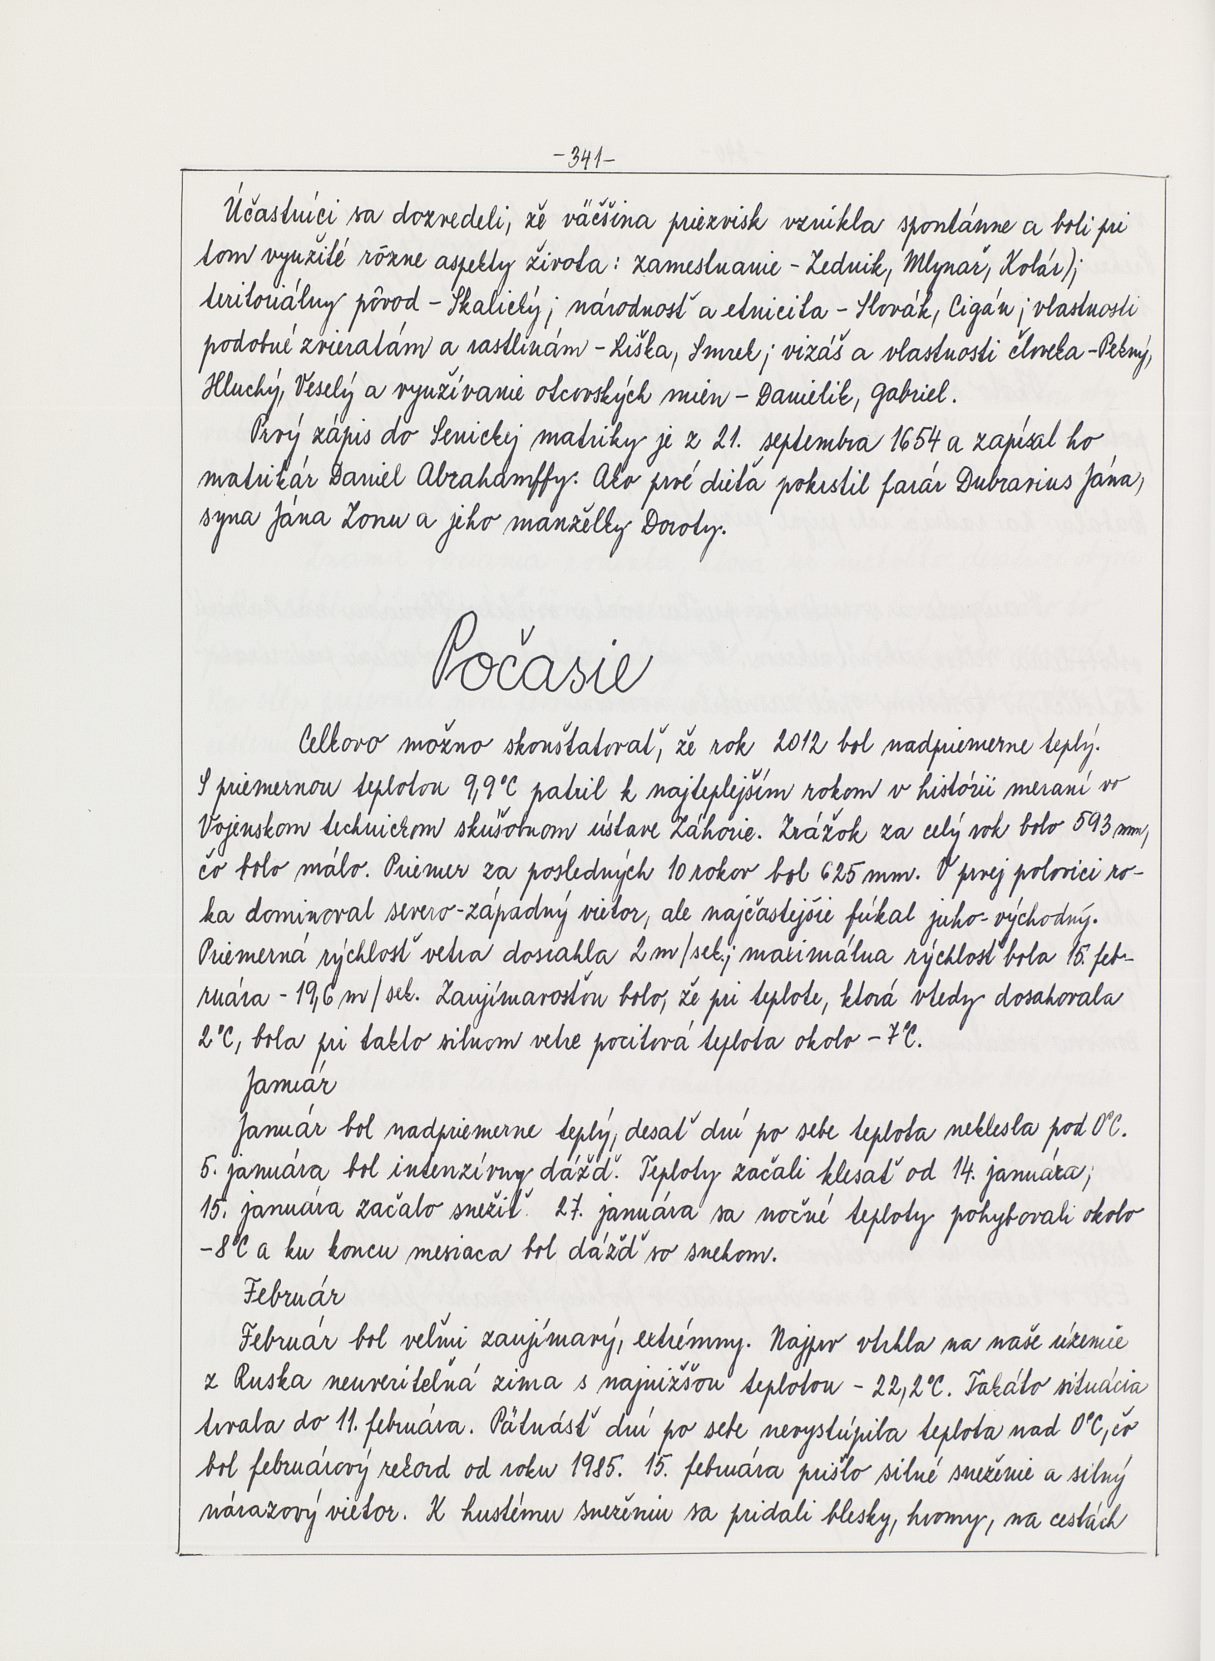 -341-
Účastníci sa dozvedeli, že väčšina priezvisk vznikla spontánne a boli pri
tom využité rôzne aspekty života: zamestnanie - Zedník, Mlynár, Kolár);
teritoriálny pôvod - Skalický; národnosť a etnicita - Slovák, Cigán; vlastnosti
podobné zvieratám a rastlinám - Liška, Smrek; vizáž a vlastnosti človeka - Pekný,
Hluchý, Veselý a využívanie otcovských mien - Danielik, Gabriel.
Prvý zápis do Senickej matriky je z 21. septembra 1654 a zapísal ho
matrikár Daniel Abrahamffy. Ako prvé dieťa pokrstil farár Dubravius Jána,
syna Jána Zonu a jeho manželky Doroty.
Počasie
Celkovo možno skonštatovať, že rok 2012 bol nadpriemerne teplý.
S priemernou teplotou 9,9°C patril k najteplejším rokom v histórii meraní vo
Vojenskom technickom skúšobnom ústave Záhorie. Zrážok za celý rok bolo 593 mm,
čo bolo málo. Priemer za posledných 10 rokov bol 625 mm. V prvej polovici ro-
ka dominoval severo-západný vietor, ale najčastejšie fúkal juho-východný.
Priemerná rýchlosť vetra dosiahla 2 m/sek.; maximálna rýchlosť bola 15. feb-
ruára - 19,6 m/sek. Zaujímavosťou bolo, že pri teplote, ktorá vtedy dosahovala
2°C, bola pri takto silnom vetre pocitová teplota okolo -7°C.
Január
Január bol nadpriemerne teplý, desať dní po sebe teplota neklesla pod 0°C.
5. januára bol intenzívny dážď. Teploty začali klesať od 14. januára;
15. januára začalo snežiť. 27. januára sa nočné teploty pohybovali okolo
-8°C a ku koncu mesiaca bol dážď so snehom.
Február
Február bol veľmi zaujímavý, extrémny. Najprv vtrhla na naše územie
z Ruska neuveriteľná zima s najnižšou teplotou - 22,2°C. Takáto situácia
trvala do 11. februára. Pätnásť dní po sebe nevystúpila teplota nad 0°C, čo
bol februárový rekord od roku 1985. 15. februára prišlo silné sneženie a silný
nárazový vietor. K hustému sneženiu sa pridali blesky, hromy, na cestách